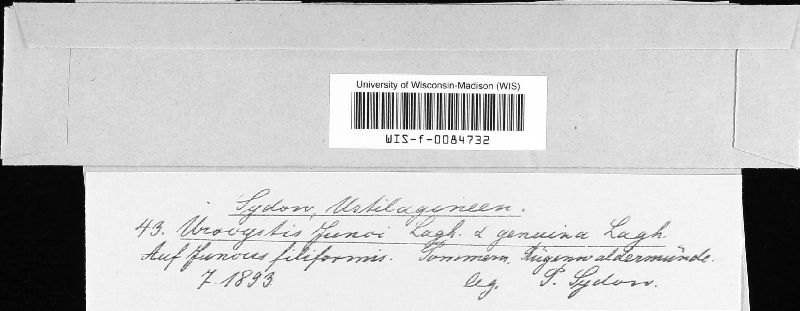 University of Wisconsin-Madison (WIS)
WIS-f-0084732
Sydow, Ustilagineen.
43. Urocystis Junci Lagh. α genuina Lagh
Auf Juncus filiformis. Pommern, Rügenwaldermünde.
7. 1893 leg. P. Sydow.